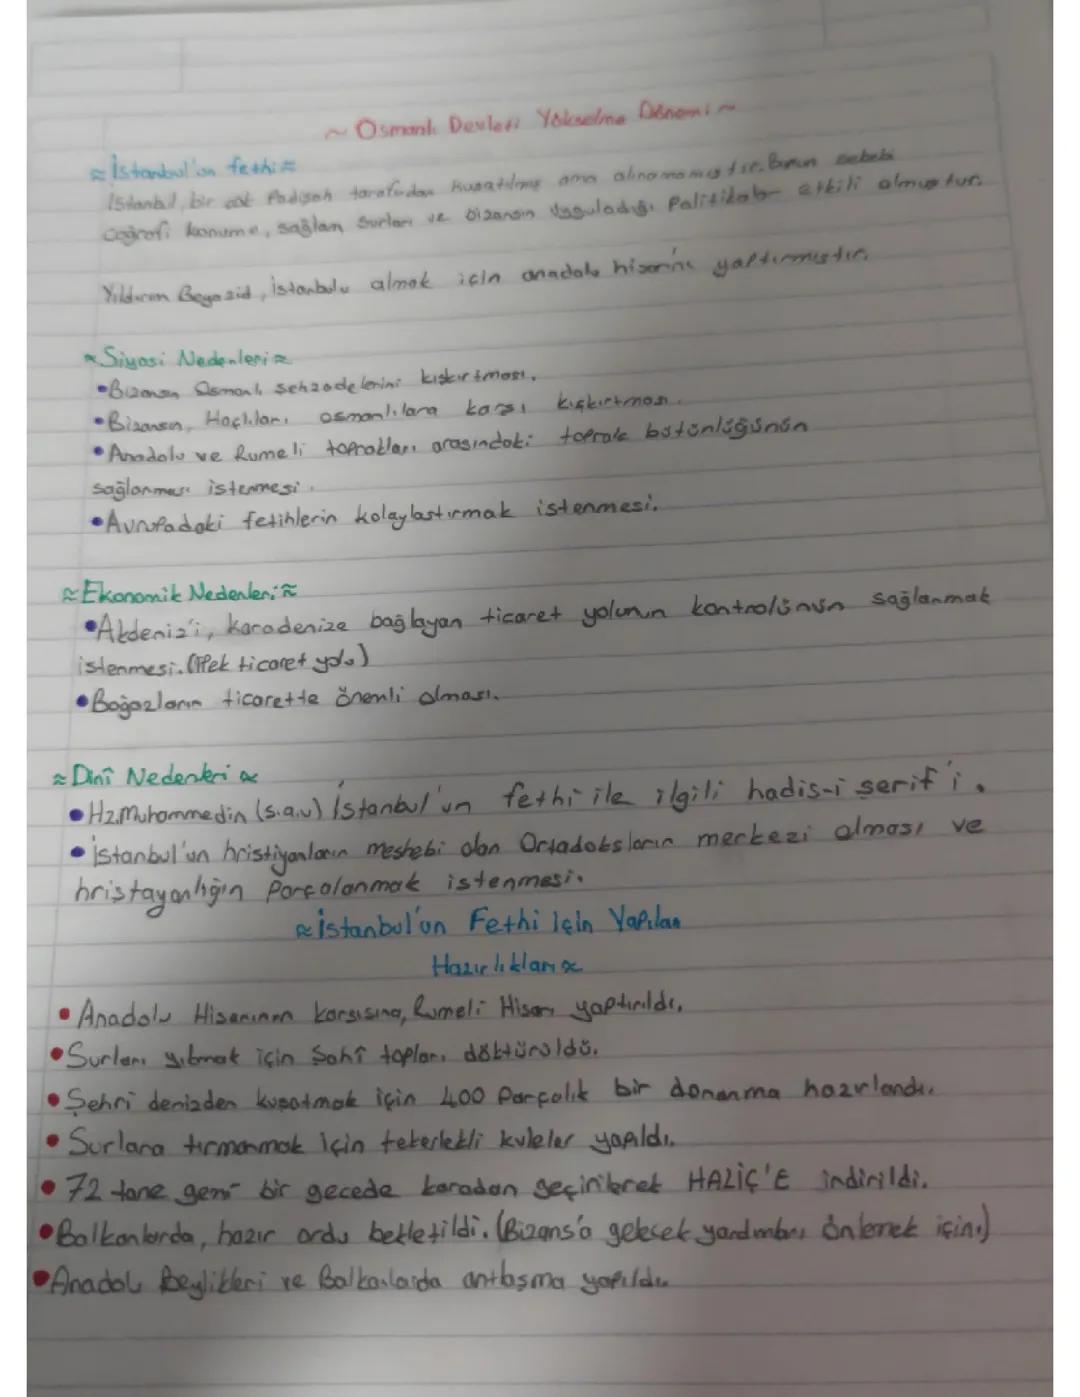 ~ Osmanlı Devleti Yükselme Dönemi ~
≈ İstanbul'un fethi ≈
İstanbul, bir çok Padişah tarafından kuşatılmış ama alınamamıştır. Bunun sebebi
coğrafi konumu, sağlam surları ve bizansın uyguladığı Politikalar etkili olmuştur.
Yıldırım Beyazid, İstanbulu almak için anadolu hisarını yaptırmıştır.
≈ Siyasi Nedenleri ≈
• Bizansın Osmanlı şehzadelerini kışkırtması.
• Bizansın, Haçlıları osmanlılara karşı kışkırtması.
• Anadolu ve Rumeli toprakları arasındaki toprak bütünlüğünün
sağlanması istenmesi.
• Avrupadaki fetihlerin kolaylaştırmak istenmesi.
≈ Ekonomik Nedenleri ≈
• Akdeniz'i, karadenize bağlayan ticaret yolunun kontrolünün sağlanmak
istenmesi. (İpek ticaret yolu)
• Boğazların ticarette önemli olması.
≈ Dinî Nedenleri ≈
• Hz.Muhammedin (s.a.v) İstanbul'un fethi ile ilgili hadis-i şerif'i.
• İstanbul'un hristiyanların meshebi olan Ortadoksların merkezi olması ve
hristayanlığın Parçalanmak istenmesi.
≈ İstanbul'un Fethi İçin Yapılan
Hazırlıkları ≈
• Anadolu Hisarının karşısına, Rumeli Hisarı yaptırıldı.
• Surları yıkmak için Şahî topları döktürüldü.
• Şehri denizden kuşatmak için 400 Parçalık bir donanma hazırlandı.
• Surlara tırmanmak için tekerlekli kuleler yapıldı.
• 72 tane gemi bir gecede karadan geçirilerek HALİÇ'E indirildi.
• Balkanlarda, hazır ordu bekletildi. (Bizans'a gelecek yardımları önlemek için.)
• Anadolu Beylikleri ve Balkanlarda antlaşma yapıldı.